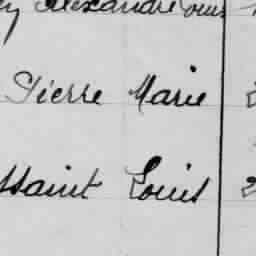 Alexandre Louis
Pierre Marie
ssaint Louis 2